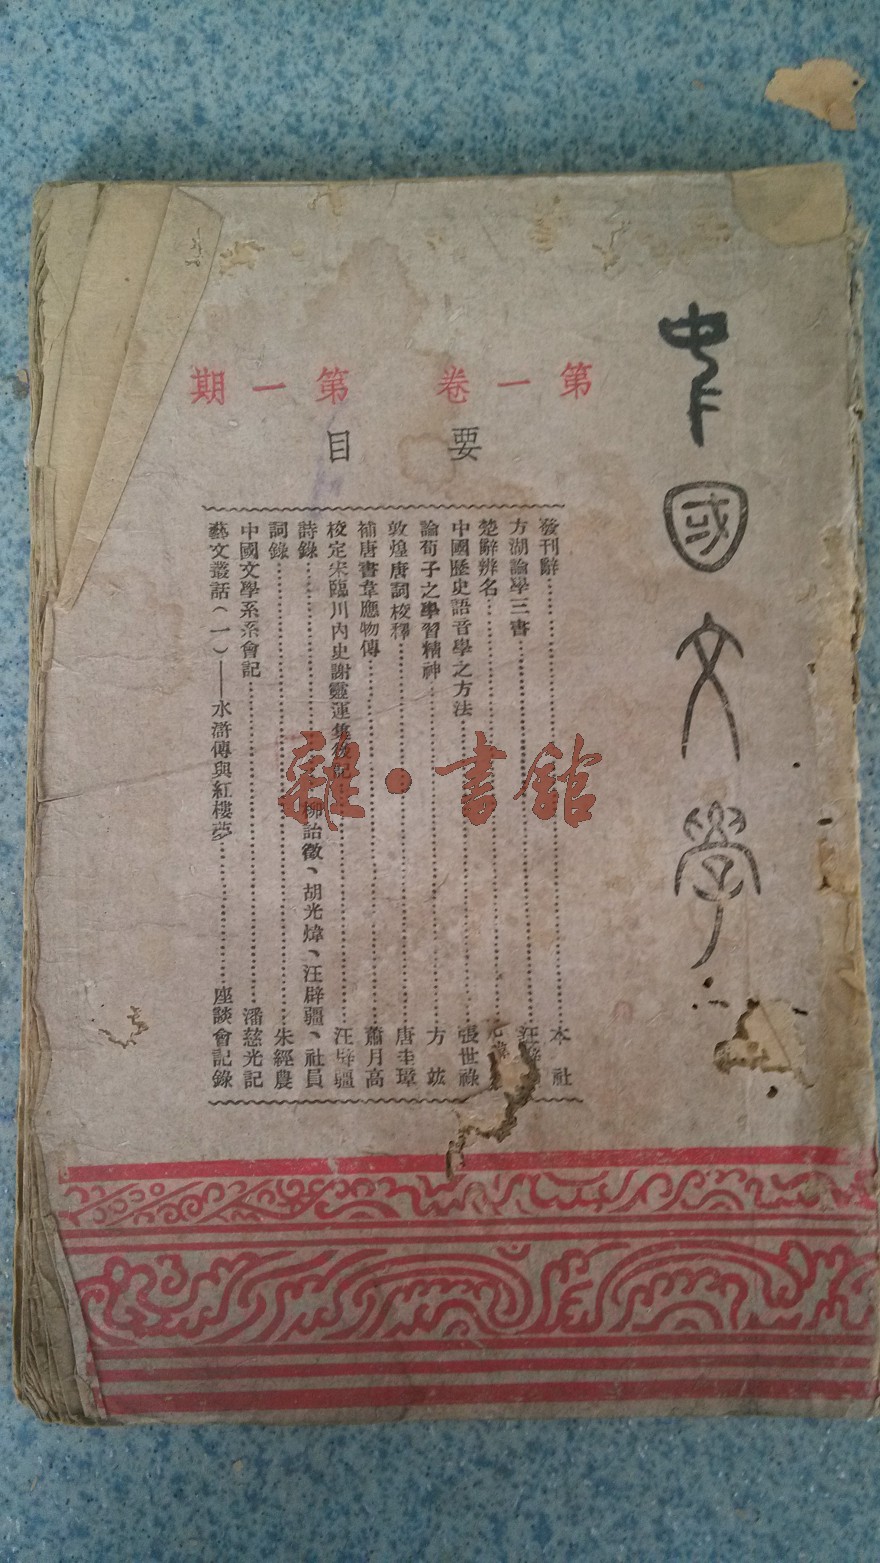 中國文學
第一卷 第一期
要目
發刊辭……本社
方湖論學三書……汪
楚辭辨名……
中國歷史語音學之方法……張世祿
論荀子之學習精神……方竑
敦煌唐詞校釋……唐圭璋
補唐書韋應物傳……蕭月高
校定宋臨川內史謝靈運集後記……汪辟疆
詩錄……柳詒徵、胡光煒、汪辟疆、社員
詞錄……朱經農
中國文學系系會記……潘慈光記
藝文叢話(一)——水滸傳與紅樓夢……座談會記錄
雜·書館